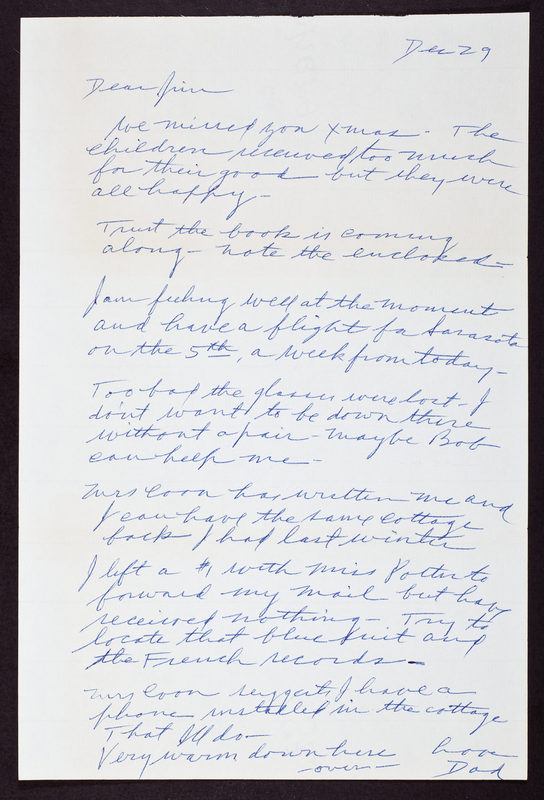 Dec 29
Dear Jim
We missed you Xmas - The
children received too much
for their good but they were
all happy -
Trust the book is coming
along - note the enclosed -
I am feeling well at the moment
and have a flight for Sarasota
on the 5th, a week from today -
Too bad the glasses were lost - I
don't want to be down there
without a pair - Maybe Bob
can help me -
Mrs Coon has written me and
I can have the same cottage
back I had last winter
I left a $1 with Miss Potter to
forward my mail but have
received nothing - Try to
locate that blue suit and
the French records -
Mrs Coon suggests I have a
phone installed in the cottage
That I'll do -
Very warm down here Love
-over- Dad